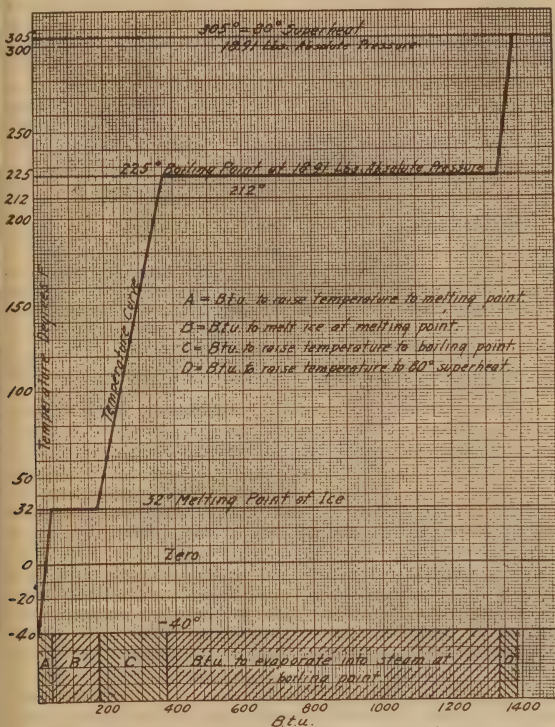 305° = 80° Superheat
18.91 Lbs. Absolute Pressure
305°
300
250
225° Boiling Point at 18.91 Lbs. Absolute Pressure
225
212
212°
200
150
100
50
32
0
-20°
-40
Temperature Degrees F.
Temperature Curve
A = B.t.u. to raise temperature to melting point.
B = B.t.u. to melt ice at melting point.
C = B.t.u. to raise temperature to boiling point.
D = B.t.u. to raise temperature to 80° superheat.
32° Melting Point of Ice
Zero
-40°
A B C B.t.u. to evaporate into steam at D
boiling point
200 400 600 800 1000 1200 1400
B.t.u.